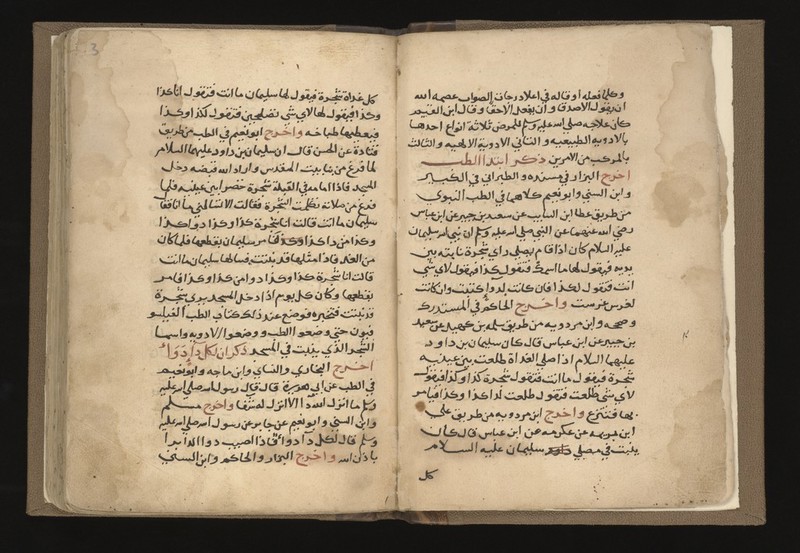 وكلما فعله او قاله في اعلا درجات الصواب عصمه الله
ان يقول الا صدقا وان يفعل الا حقا وقال ابن القيم
كان علاجه صلى الله عليه وسلم للمرض ثلاثة انواع احدها
بالادوية الطبيعيه والثاني الادوية الالهيه والثالث
بالمركب من الامرين ذكر ابتدا الطب
اخرج البزار في مسنده والطبراني في الكبير
وابن السني وابو نعيم كلاهما في الطب النبوى
من طريق عطا ابن السايب عن سعيد بن جبير عن ابن عباس
رضي الله عنهما عن النبي صلى الله عليه وسلم ان نبي الله سليمان
عليه السلام كان اذا قام يصلي راي شجرة نابته بين
يديه فيقول لها ما اسمك فتقول كذا فيقول لاي شي
انت فتقول لكذا فان كانت لدوا كتبت وان كانت
لغرس غرست واخرج الحاكم في المستدرك
وصححه وابن مردويه من طريق سلمه بن كهيل عن سعيد
بن جبير عن ابن عباس قال كان سليمان بن داود
عليهما السلام اذا صلى الغداة طلعت بين عينيه
شجرة فيقول ما انت فتقول شجرة كذا وكذا فيقول
لاي شي طلعت فتقول طلعت لذا كذا وكذا فيامر
بها فتنزع واخرج ابن مردويه من طريق علي
ابن بذيمه عن عكرمه عن ابن عباس قال كان
ينبت في مصلي سليمان عليه السلام
كل
كل غداة شجرة فيقول لها سليمان ما انت فتقول انا كذا
وكذا فيقول لها لاي شي تصلحين فتقول لكذا وكذا
فيعطيها طباخه واخرج ابو نعيم في الطب من طريق
قتادة عن الحسن قال ان سليمان بن داود عليهما السلام
لما فرغ من بنا بيت المقدس واراد الله قبضه دخل
المسجد فاذا امامه في القبلة شجرة خضرا بين عينيه فلما
فرغ من صلاته تكلمت الشجرة فقالت الا تسالني ما انا فقال
سليمان ما انت قالت انا شجرة كذا وكذا دوا كذا
وكذا من دا كذا وكذا فامر سليمان بقطعها فلما كان
من الغد فاذا مثلها قد نبتت فسالها سليمان ما انت
قالت انا شجرة كذا وكذا دوا من كذا وكذا فامر
بقطعها وكان كل يوم اذا دخل المسجد يري شجرة
قد نبتت فتخبره فوضع عند ذلك كتاب الطب الفيلسو
فيون حتي وضعوا الطب ووضعوا الادويه واسما
الشجر الذي ينبت في المسجد ذكر ان لكل دآ دوآ
اخرج البخاري والنساي وابن ماجه وابو نعيم
في الطب عن ابي هريرة قال قال رسول الله صلى الله عليه
وسلم ما انزل الله دآ الا انزل له شفا واخرج مسلم
وابن السني وابو نعيم عن جابر عن رسول الله صلى الله عليه
وسلم قال لكل دآ دوآ فاذا اصيب دوا الدا برا
باذن الله واخرج والحاكم وابن السني